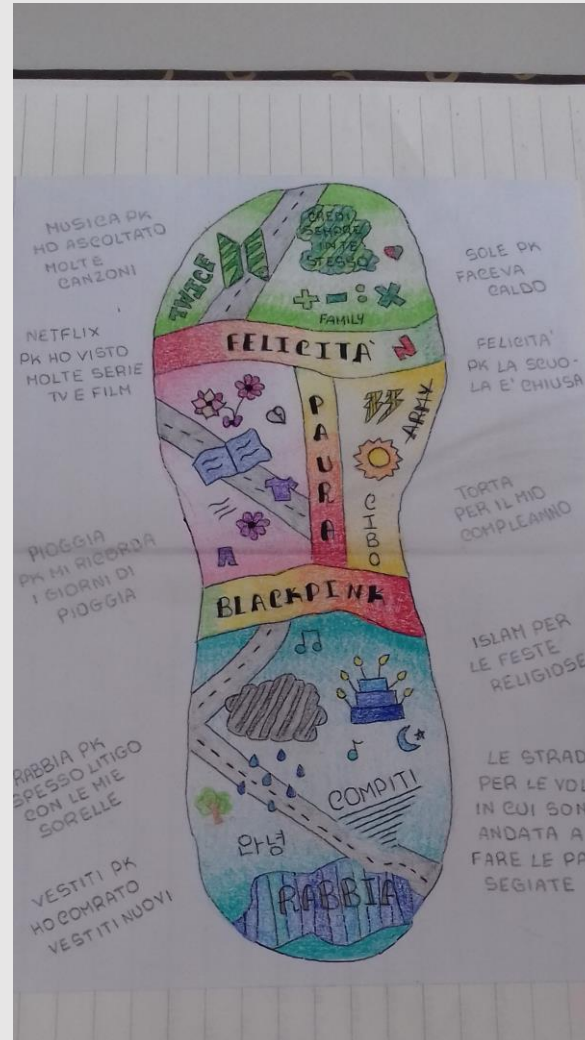 MUSICA PK
HO ASCOLTATO
MOLTE
CANZONI
NETFLIX
PK HO VISTO
MOLTE SERIE
TV E FILM
PIOGGIA
PK MI RICORDA
I GIORNI DI
PIOGGIA
RABBIA PK
SPESSO LITIGO
CON LE MIE
SORELLE
VESTITI PK
HO COMRATO
VESTITI NUOVI
TWICE
CREDI
SEMPRE
IN TE
STESSO
+ - : ×
FAMILY
FELICITÀ N
PAURA
ARMY
CIBO
BLACKPINK
COMPITI
안녕
RABBIA
SOLE PK
FACEVA
CALDO
FELICITA'
PK LA SCUO-
LA E' CHIUSA
TORTA
PER IL MIO
COMPLEANNO
ISLAM PER
LE FESTE
RELIGIOSE
LE STRAD
PER LE VOL
IN CUI SON
ANDATA A
FARE LE PA
SEGIATE